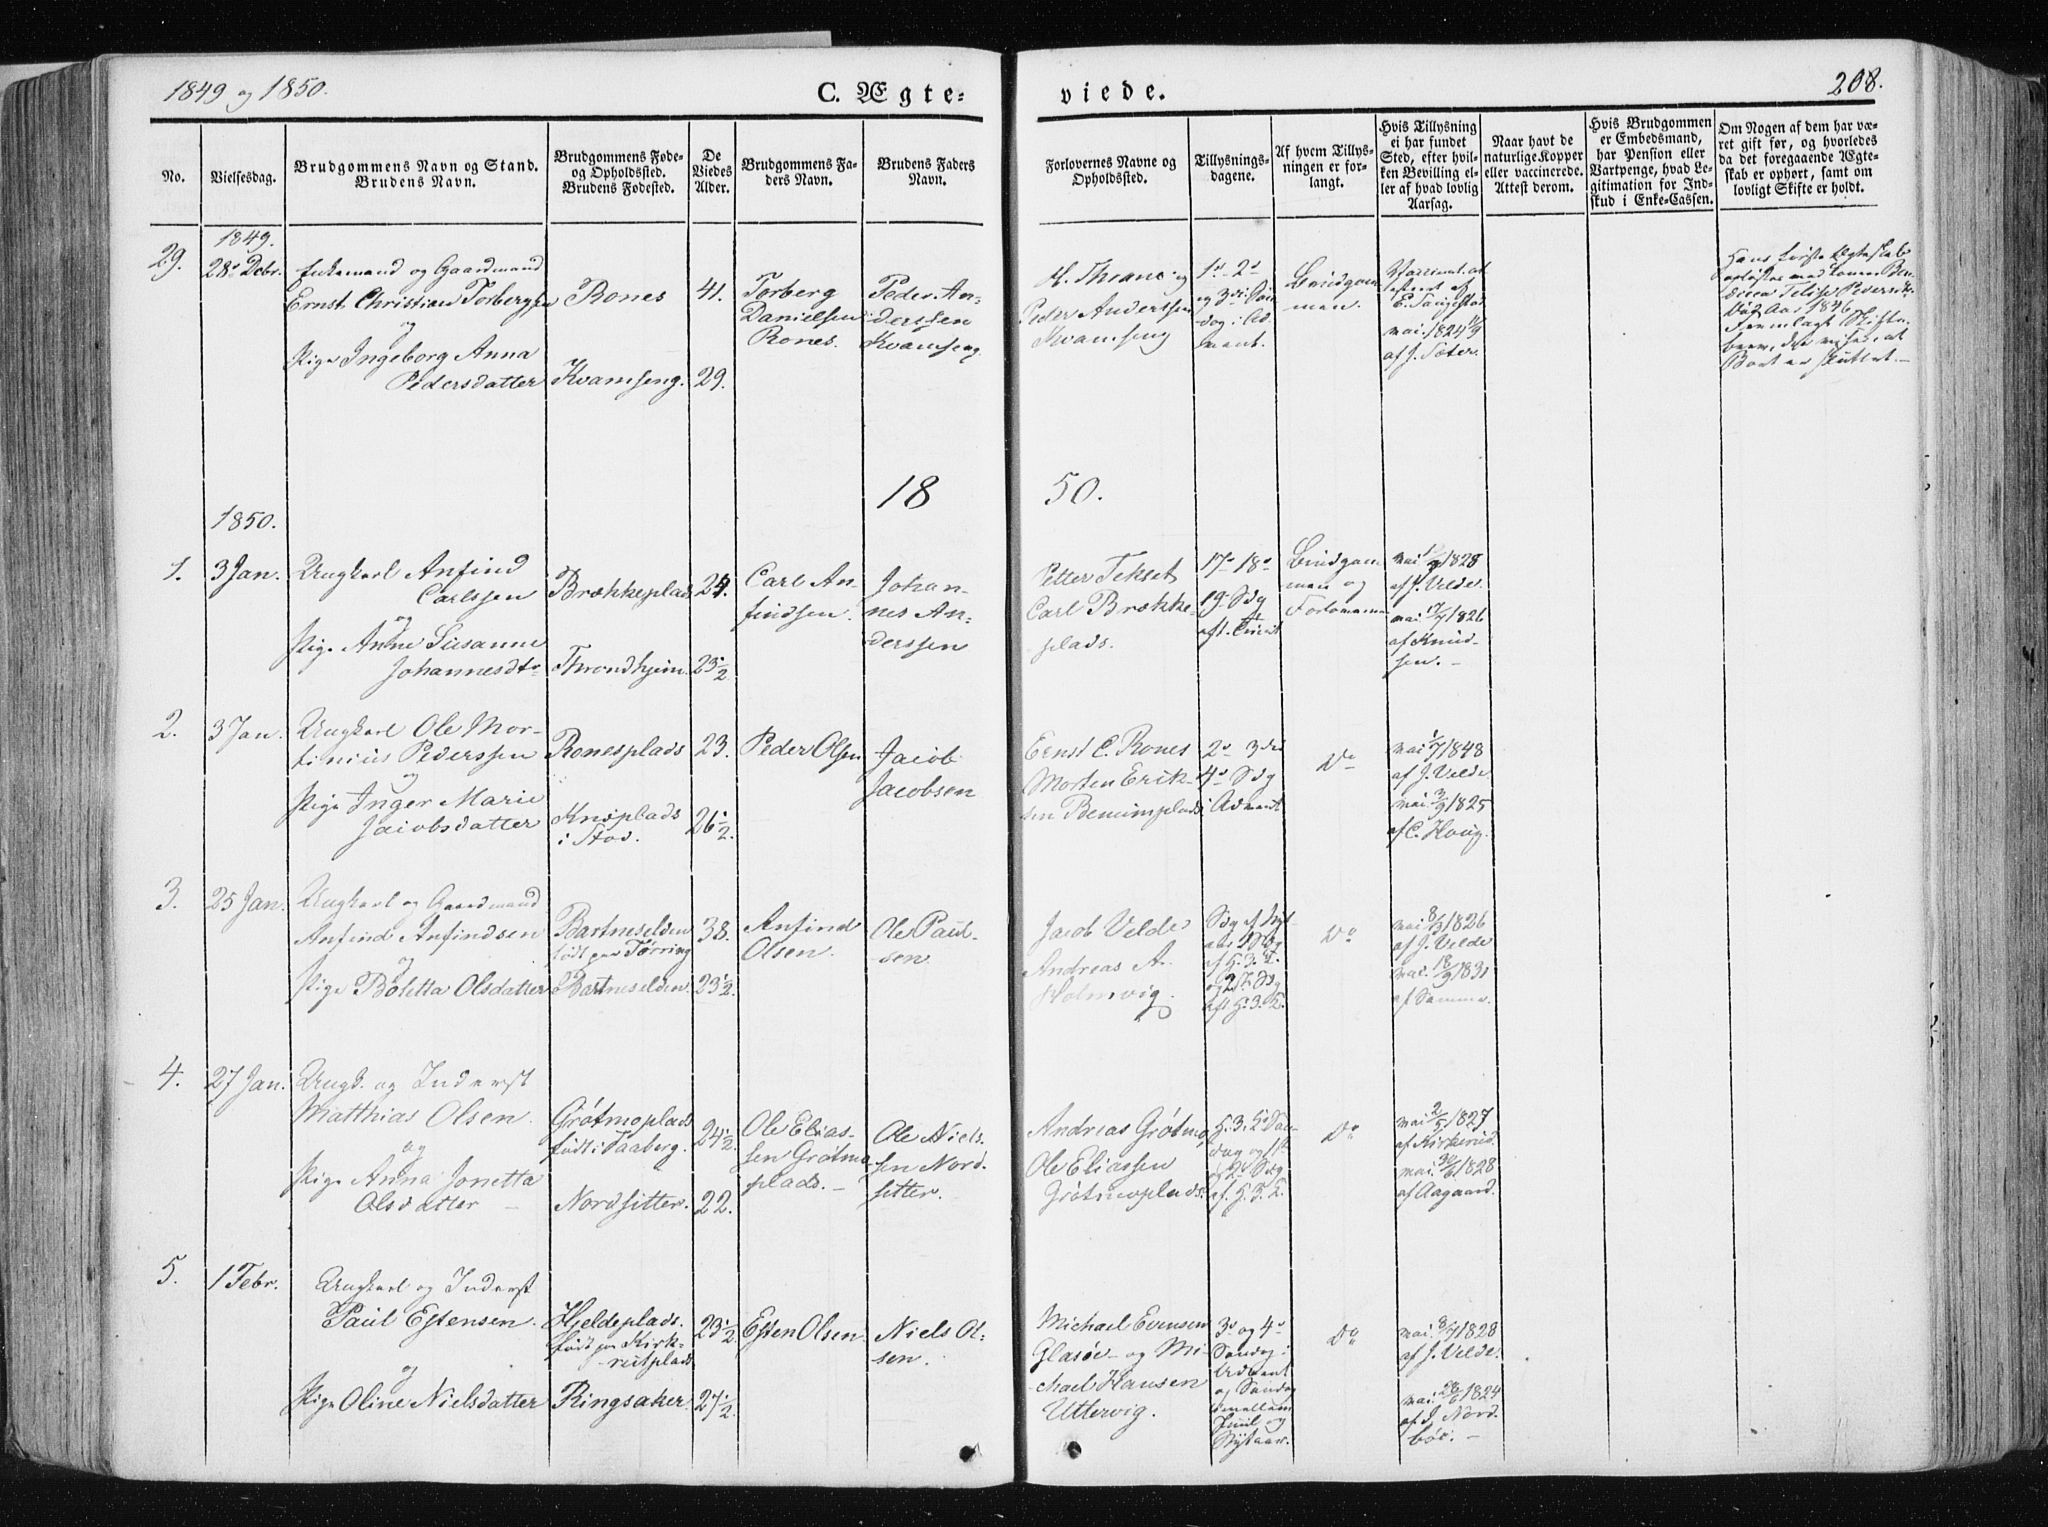 1849 og 1850.
C. Ægte-
viede.
208.
No.
Vielsesdag.
Brudgommens Navn og Stand.
Brudens Navn.
Brudgommens Føde-
og Opholdssted.
Brudens Fødested.
De
Viedes
Alder.
Brudgommens Fa-
ders Navn.
Brudens Faders
Navn.
Forlovernes Navne og
Opholdssted.
Tillysnings-
dagene.
Af hvem Tillys-
ningen er for-
langt.
Hvis Tillysning
ei har fundet
Sted, efter hvil-
ken Bevilling el-
ler af hvad lovlig
Aarsag.
Naar havt de
naturlige Kopper
eller vaccinerede.
Attest derom.
Hvis Brudgommen
er Embedsmand,
har Pension eller
Vartpenge, hvad Le-
gitimation for Ind-
skud i Enke-Cassen.
Om Nogen af dem har væ-
ret gift før, og hvorledes
da det foregaaende Ægte-
skab er ophørt, samt om
lovligt Skifte er holdt.
29.
1849.
28de Decbr.
Enkemand og Gaardmand
Ernst Christian Torbergsen
og
Pige Ingeborg Anna
Pedersdatter
Rones
Kvamseng.
41.
29.
Torberg
Danielsen
Rones.
Peder An-
derssen
Kvamseng
H. Thrane og
Peder Anderssen
Kvamseng
1ste 2den
og 3die Søn-
dag i Ad-
vent.
Brudgom-
men.
1824
af J. Sæter.
Hans første Ægteskab
1846
18 50.
1850.
1.
3 Jan.
Ungkarl Anfind
Carlssen
og
Pige Anne Susanne
Johannesdtr
Brækkeplads
Throndhjem.
23 1/2
Carl An-
findsen.
Johan-
nes An-
derssen
Petter Tekset
Carl Brække-
plads.
17de 18de
19de Sdg
aft. Trinit
Brudgom-
men og
Forloverne
1828
af J. Velde.
17/7 1826
af Knud-
sen.
2.
3 Jan.
Ungkarl Ole Mor-
tinius Pederssen
og
Pige Inger Marie
Jacobsdatter
Ronesplads
Kneplads
i Stod.
23.
26 1/2.
Peder Olsen
Jacob
Jacobsen
Ernst C. Rones
Morten Erik-
sen
2den 3die
4de Sdg
i Advent
Do
1848
af J. Velde.
1825
af C. Houg.
3.
25 Jan.
Ungkarl og Gaardmand
Anfind Anfindsen
og
Pige Boletta Olsdatter
Bartneselden
født paa Tørring
Bartneselden.
38.
23 1/2.
Anfind
Olsen.
Ole Paul-
sen.
Jacob Velde
Andreas A.
Holmvig.
Do
8/3 1826
af J. Velde
18/9 1831
af Samme.
4.
27 Jan.
Ungk. og Inderst
Matthias Olsen.
og
Pige Anna Jonetta
Olsdatter
Grøtmoplads
født i Faaberg.
Nordsitter.
24 1/2.
22.
Ole Elias-
sen Grøtmo-
plads.
Ole Niels-
sen Nord-
sitter.
Andreas Grøtmo
Ole Eliassen
Grøtmoplads.
Do
2/5 1827
af Kirkerud.
30/6 1828
af Aagaard.
5.
1 Febr.
Ungkarl og Inderst
Paul Estensen.
og
Pige Oline Nielsdatter
Hjeldeplads.
født paa Kirk-
reitplads
Ringsaker.
23 1/2.
27 1/2.
Esten Olsen
Niels Ol-
sen.
Michael Evensen
Glasøe og Mi-
chael Hansen
Uttervig.
3die og 4de
Søndag i
Advent
og Søndag
imellem
Juul og
Nytaar.
Do
8/7 1828
af J. Velde.
26/6 1824
af J. Nord-
bøe.